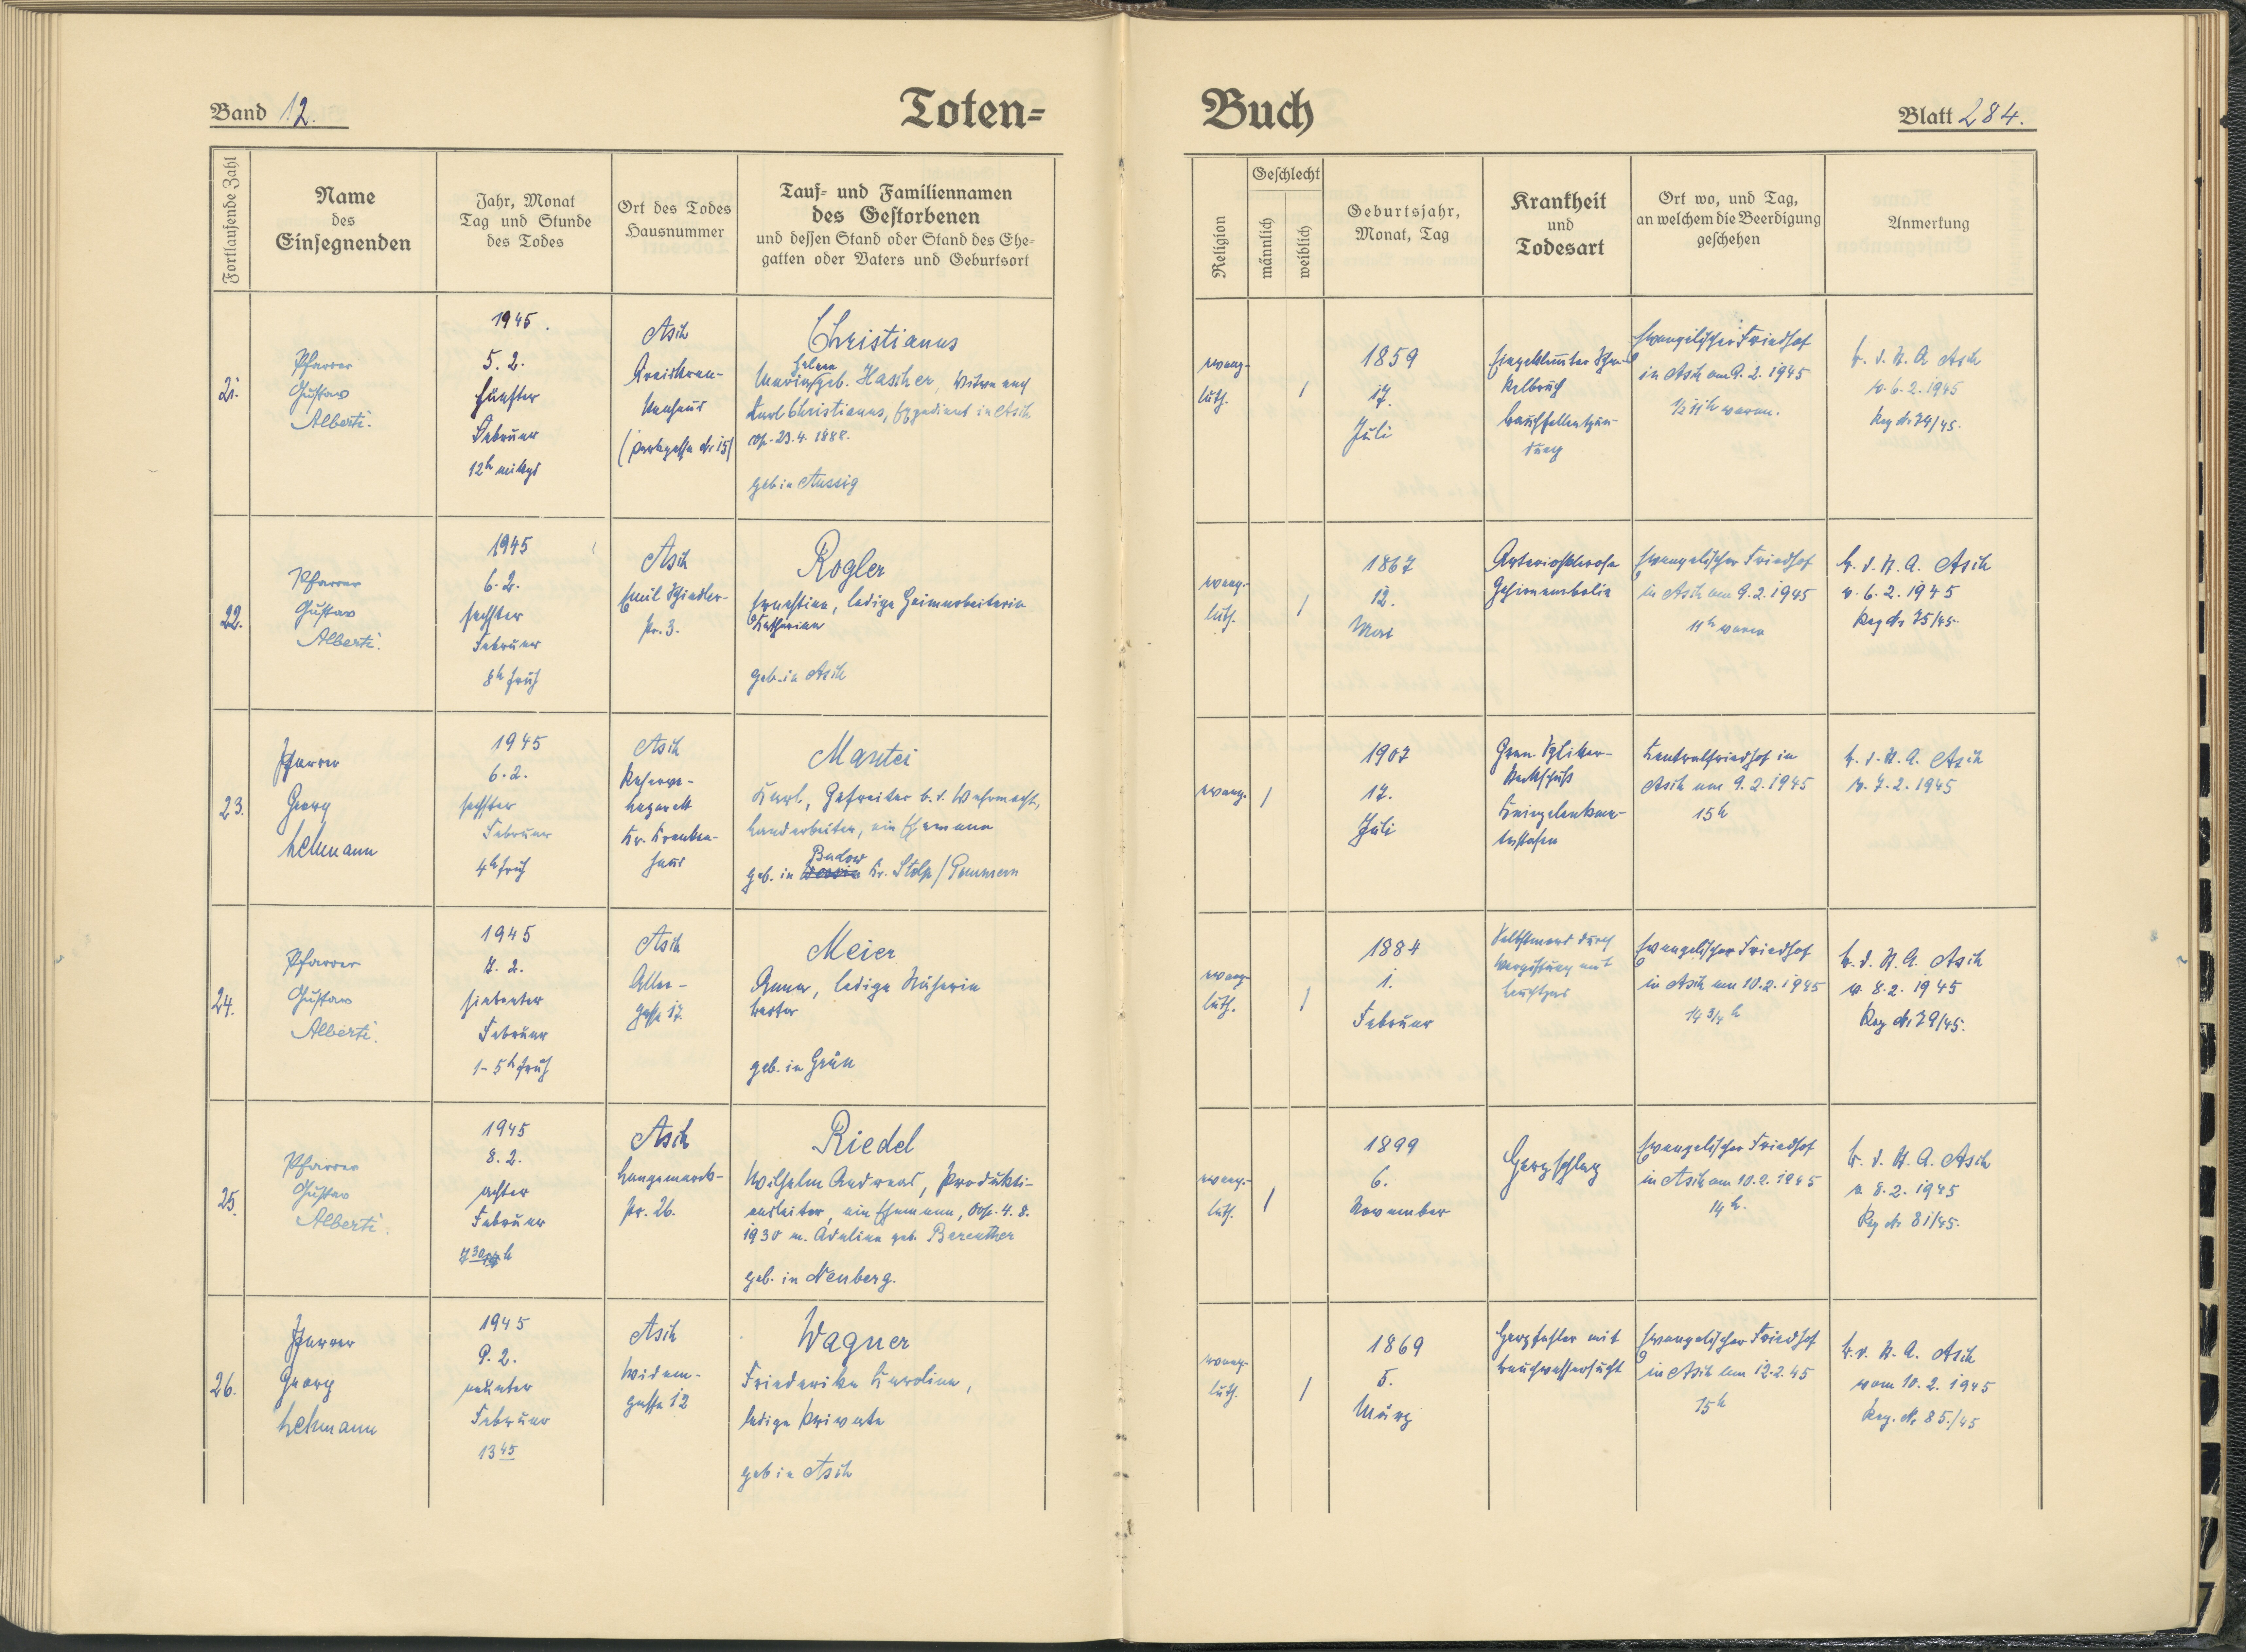 Band 12.
Toten=
Fortlaufende Zahl
Name
des
Einsegnenden
Jahr, Monat
Tag und Stunde
des Todes
Ort des Todes
Hausnummer
Tauf= und Familiennamen
des Gestorbenen
und dessen Stand oder Stand des Ehe=
gatten oder Vaters und Geburtsort
21.
Pfarrer
Gustav
Alberti.
1945.
5. 2.
fünfter
Februar
12h mittgs
Asch
Kreiskran-
kenhaus
(Parkgasse Nr 15)
Christianus
Helene
Maria geb. Hascher, Witwe nach
Karl Christianus, in Asch
cop. 23.4. 1888.
geb in Aussig
22.
Pfarrer
Gustav
Alberti.
1945
6. 2.
sechster
Februar
8h früh
Asch
Emil Schindler-
Str. 3.
Rogler
Ernestine, ledige Heimarbeiterin
Katharina
geb. in Asch
23.
Pfarrer
Georg
Lehmann
1945
6. 2.
sechster
Februar
4h früh
Asch
Reserve-
Lazarett
Kr. Kranken-
haus
Mantei
Karl, Gefreiter b. d. Wehrmacht,
Landarbeiter, ein Ehemann
Budow
geb. in Kr. Stolp/Pommern
24.
Pfarrer
Gustav
Alberti.
1945
7. 2.
siebenter
Februar
1-5h früh
Asch
Aller-
gasse 17.
Meier
Anna, ledige Näherin
Berta
geb. in Grün
25.
Pfarrer
Gustav
Alberti.
1945
8. 2.
achter
Februar
7 30 h
Asch
Langemarck-
Str. 26.
Riedel
Wilhelm Andreas, Produkti-
onsleiter, ein Ehemann, cop. 4. 8.
1930 m. Adeline geb. Bareuther
geb. in Neuberg.
26.
Pfarrer
Georg
Lehmann
1945
9. 2.
neunter
Februar
13 45
Asch
Widem-
gasse 12
Wagner
Friederike Karoline,
ledige Private
geb in Asch
Buch
Blatt 284.
Religion
Geschlecht
männlich
weiblich
Geburtsjahr,
Monat, Tag
Krankheit
und
Todesart
Ort wo, und Tag,
an welchem die Beerdigung
geschehen
Anmerkung
evang.
luth.
/
1859
17.
Juli
Eingeklemmter Schen-
kelbruch
Bauchfellentzün-
dung
Evangelischer Friedhof
in Asch am 9. 2. 1945
1/2 11h vorm.
B. d. St. A. Asch
v. 6. 2. 1945
Reg Nr 74/45.
evang.
luth.
/
1867
12.
Mai
Arteriosklerose
Gehirnembolie
Evangelischer Friedhof
in Asch am 9. 2. 1945
11h vorm
B. d. St. A. Asch
v. 6. 2. 1945
Reg Nr 75/45.
evang.
/
1907
17.
Juli
Gran. Splitter-
Steckschuß
Kniegelenk
Zentralfriedhof in
Asch am 9. 2. 1945
15h
B. d. St. A. Asch
v. 7. 2. 1945
evang
luth.
/
1884
1.
Februar
Selbstmord durch
Vergiftung mit
Leuchtgas
Evangelischer Friedhof
in Asch am 10. 2. 1945
14 3/4 h
B. d. St. A. Asch
v. 8. 2. 1945
Reg Nr 79/45.
evang.
luth.
/
1899
6.
November
Herzschlag
Evangelischer Friedhof
in Asch am 10. 2. 1945
14h.
B. d. St. A. Asch
v. 8. 2. 1945
Reg Nr 81/45.
evang.
luth.
/
1869
5.
März
Herzfehler mit
Bauchwassersucht
Evangelischer Friedhof
in Asch am 12. 2. 45
15h
B. d. St. A. Asch
vom 10. 2. 1945
Reg. Nr 85./45